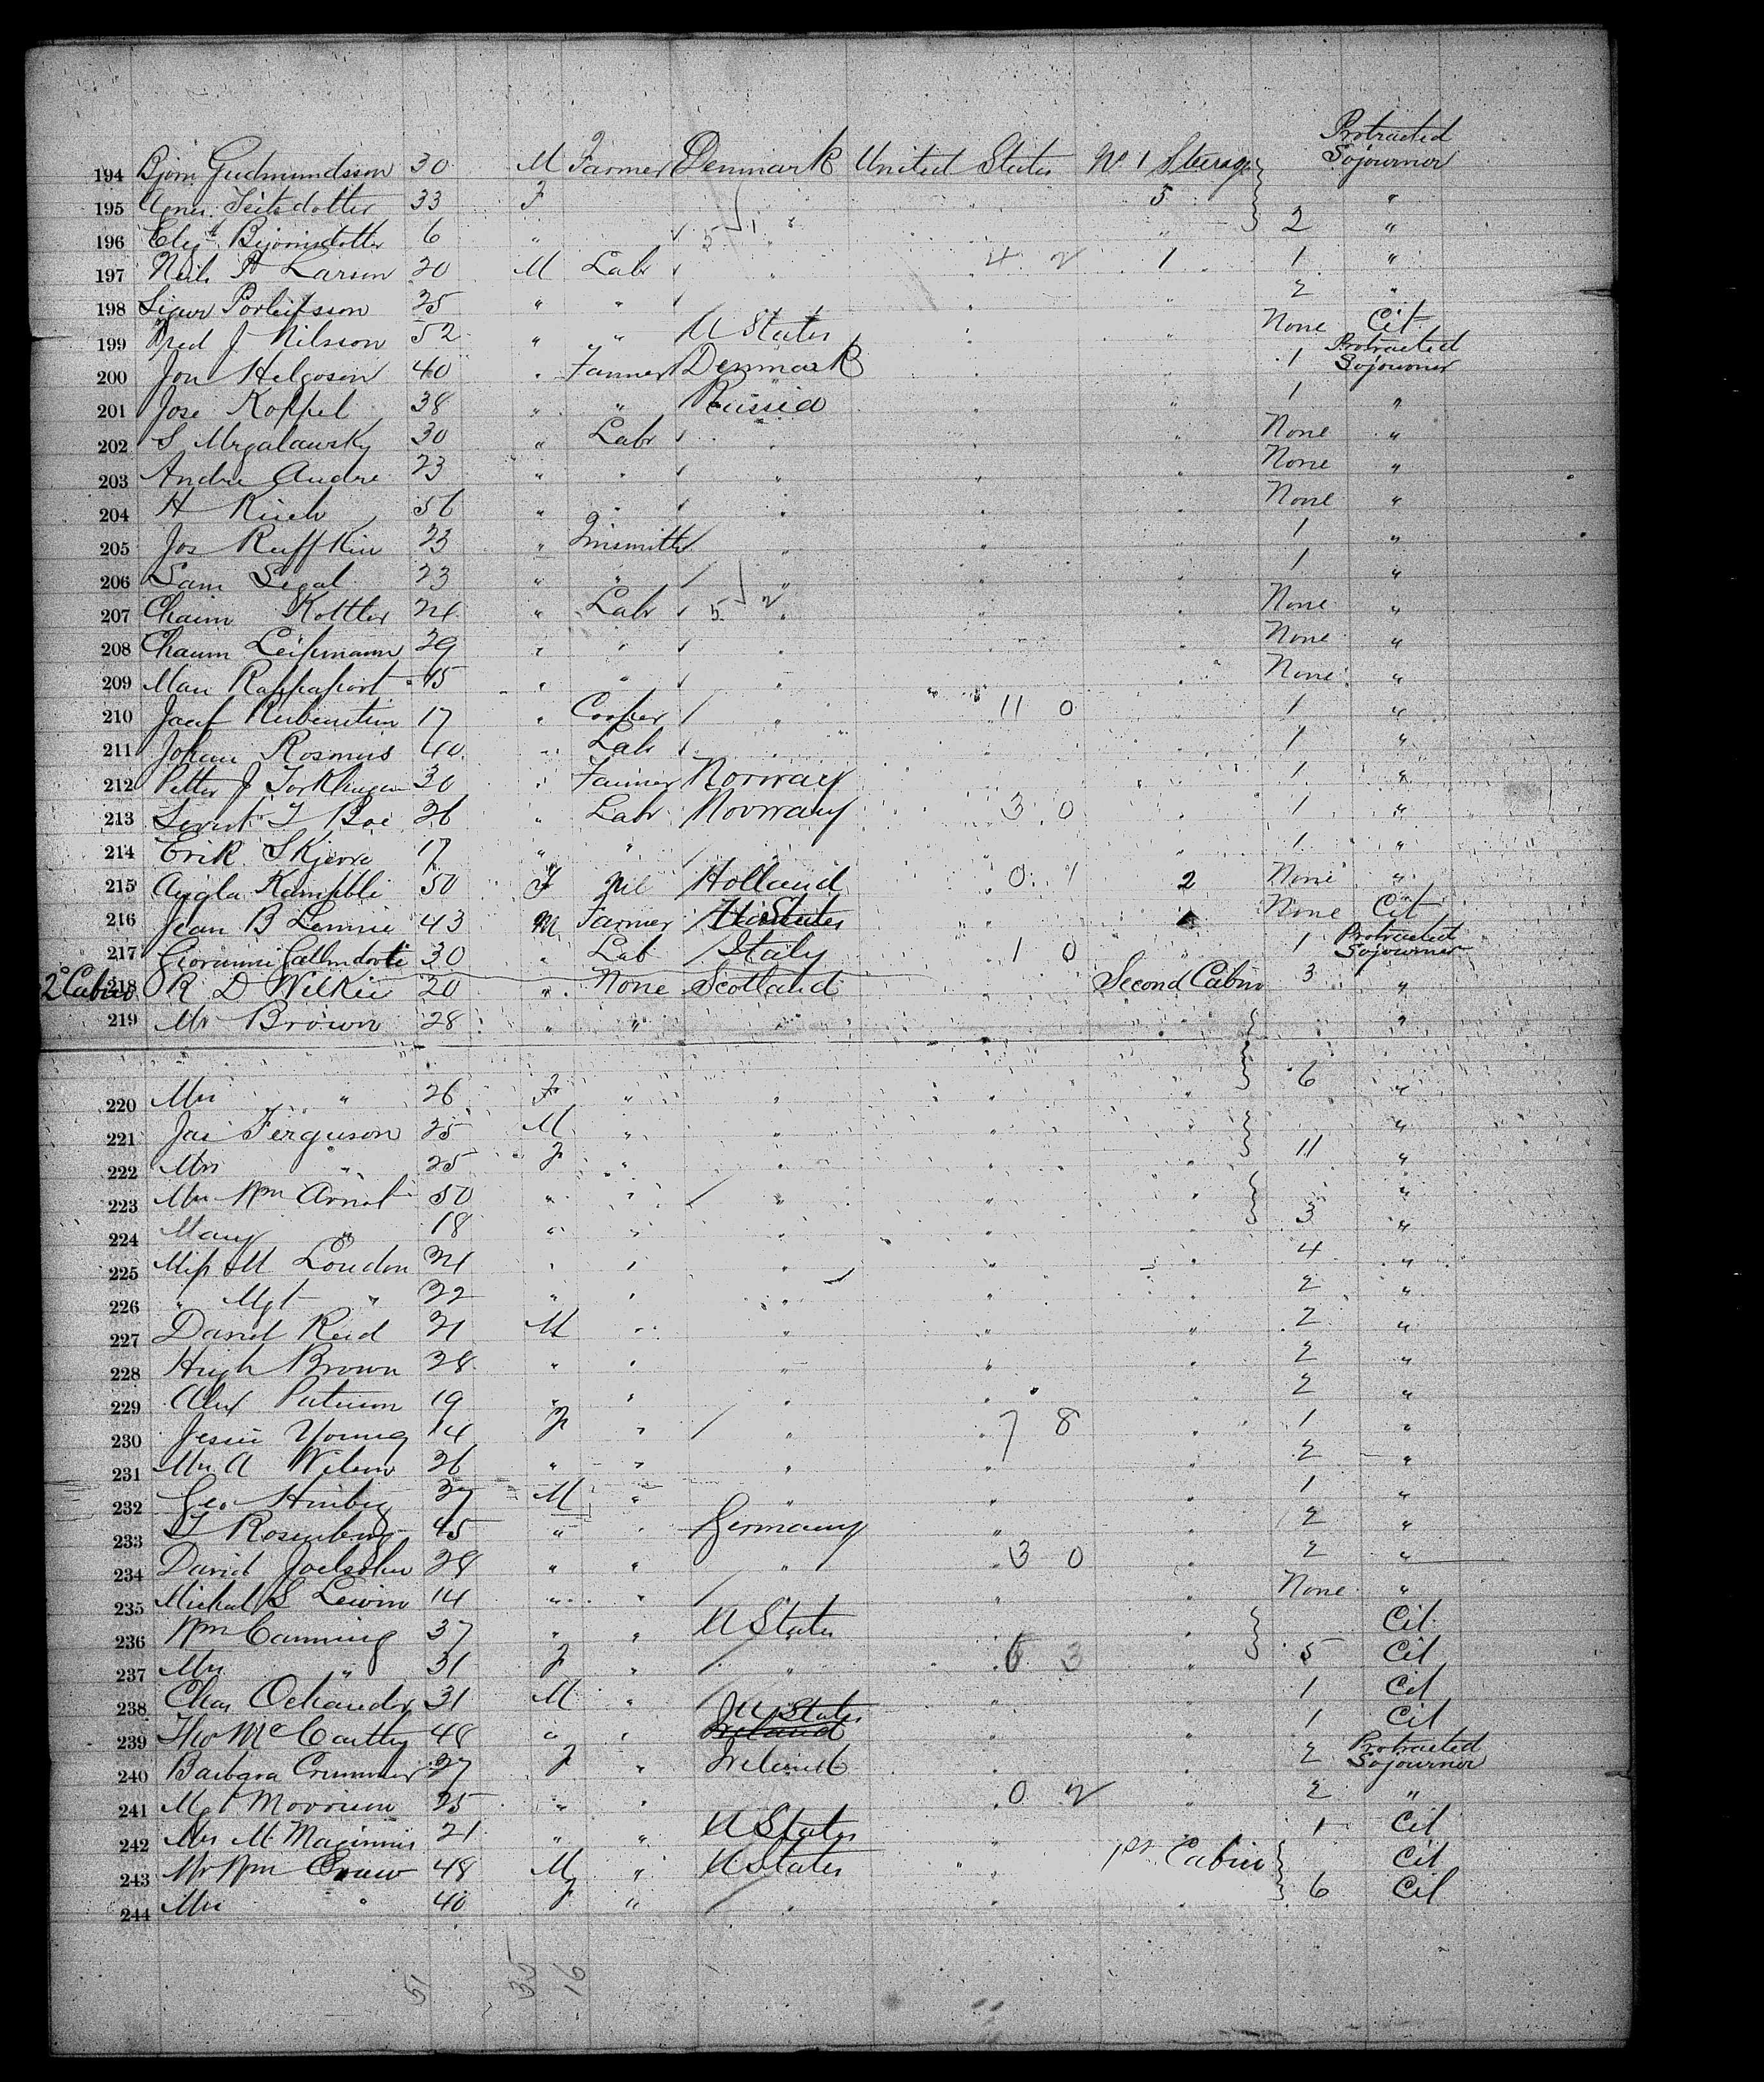 Protracted
194 Björn Gudmundsson 30 M Farmer Denmark United States No 1 Steerage Sojourner
195 33 F " 5 "
196 Bjornsdotter 6 " ✓ " " " 2 "
197 Neils P Larsen 20 M Labr ✓ " " 4 2 1 1 "
198 35 " " ✓ " " " 2 "
199 Fred J Nilsson 52 " " U States " " None Cit
200 Jon Helgoson 40 " Farmer Denmark " " 1 Protracted Sojourner
201 Jose Koppel 38 " " Russia " " 1 "
202 S 30 " Labr ✓ " " " None "
203 Andre Andre 23 " " ✓ " " " None "
204 H 56 " " ✓ " " " None "
205 Jos Ruffkin 23 " Tinsmith / " " " 1 "
206 Sam Segal 23 " " / " " " 1 "
207 Chaim Kottler 24 " Labr ✓ 5 2 " " " None "
208 Chaum Leipmann 29 " " ✓ " " " None "
209 Rappaport 45 " " ✓ " " " None "
210 Rubenstein 17 " Cooper / " " 11 0 " 1 "
211 Johan Rosmus 40 " Lab ✓ " " " 1 "
212 Petter J 30 " Farmer Norway " " 1 "
213 T Boe 26 " Labr Norway " 3 0 " 1 "
214 Erik Skjerve 17 " " / " " " 1 "
215 50 F Nil Holland " 0 1 2 None "
216 Jean B Lennie 43 M Farmer U States " " None Cit
217 Giovanni 30 " Lab / Italy " 1 0 " 1 Protracted Sojourner
2° Cabin 218 R D Wilkie 20 " None Scotland " Second Cabin 3 "
219 Mr Brown 28 " " " " " "
220 Mrs " 26 F " " " " 6 "
221 Jas Ferguson 25 M " " " " "
222 Mrs " 25 F " " " " 11 "
223 Mrs Wm Arnot 50 " " / " " " "
224 Mary " 18 " " " " " 3 "
225 Miss M Loudon 24 " " " " " 4 "
226 " Mgt " 22 " " " " " 2 "
227 David Reid 21 M " " " " 2 "
228 Hugh Brown 28 " " " " " 2 "
229 Alex 19 " " " " " 2 "
230 Jessie Young 14 F " / " " 7 8 " 1 "
231 Mrs A Wilson 26 " " " " " 2 "
232 Geo 37 M " " " " 1 "
233 Rosenberg 45 " " Germany " " 2 "
234 David Joelsohn 28 " " " " 3 0 " 2 "
235 Michal S Lewin 14 " " / " " None "
236 Wm Canning 37 " " U States " " Cit
237 Mrs " 31 F " / " " 6 3 " 5 Cit
238 Chas 31 M " / " " 1 Cit
239 Thos McCarthy 48 " " U States Ireland " " 1 Cit
240 Barbara 27 F " Ireland " " 2 Protracted Sojourner
241 Mgt Morrison 25 " " " " 0 2 " 2 "
242 Mrs M Maginnis 21 " " U States " " 1 Cit
243 Mr Wm 48 M " U States " 1st Cabin Cit
244 Mrs " 40 F " / " " " 6 Cit
51 35 16